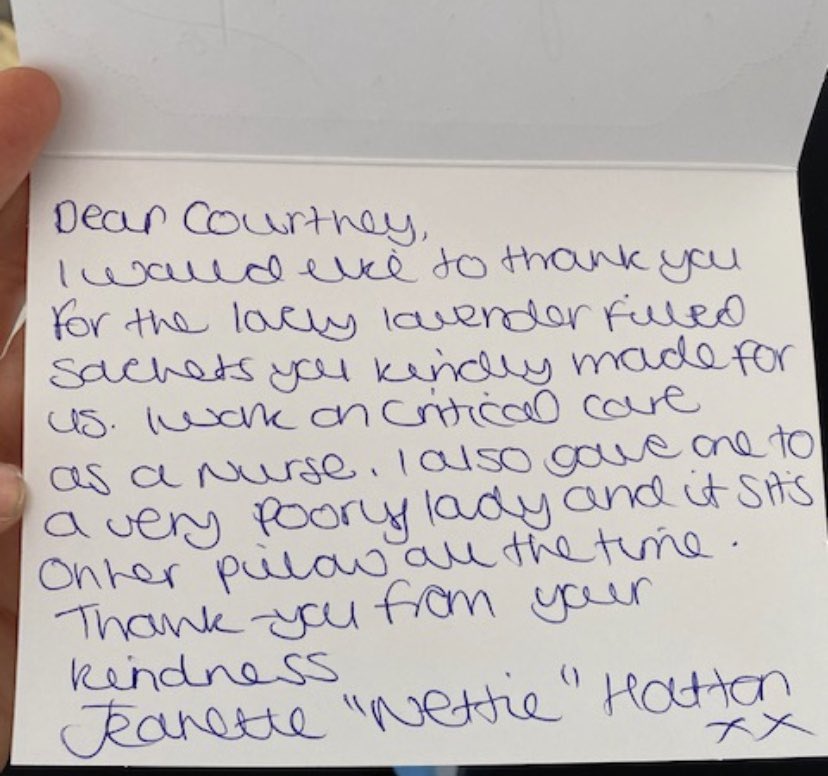 Dear Courtney,
I would like to thank you
for the lovely lavender filled
sachets you kindly made for
us. I work on Critical care
as a Nurse. I also gave one to
a very poorly lady and it sits
on her pillow all the time.
Thank-you from your
kindness
Jeanette "Nettie" Hatton
xx